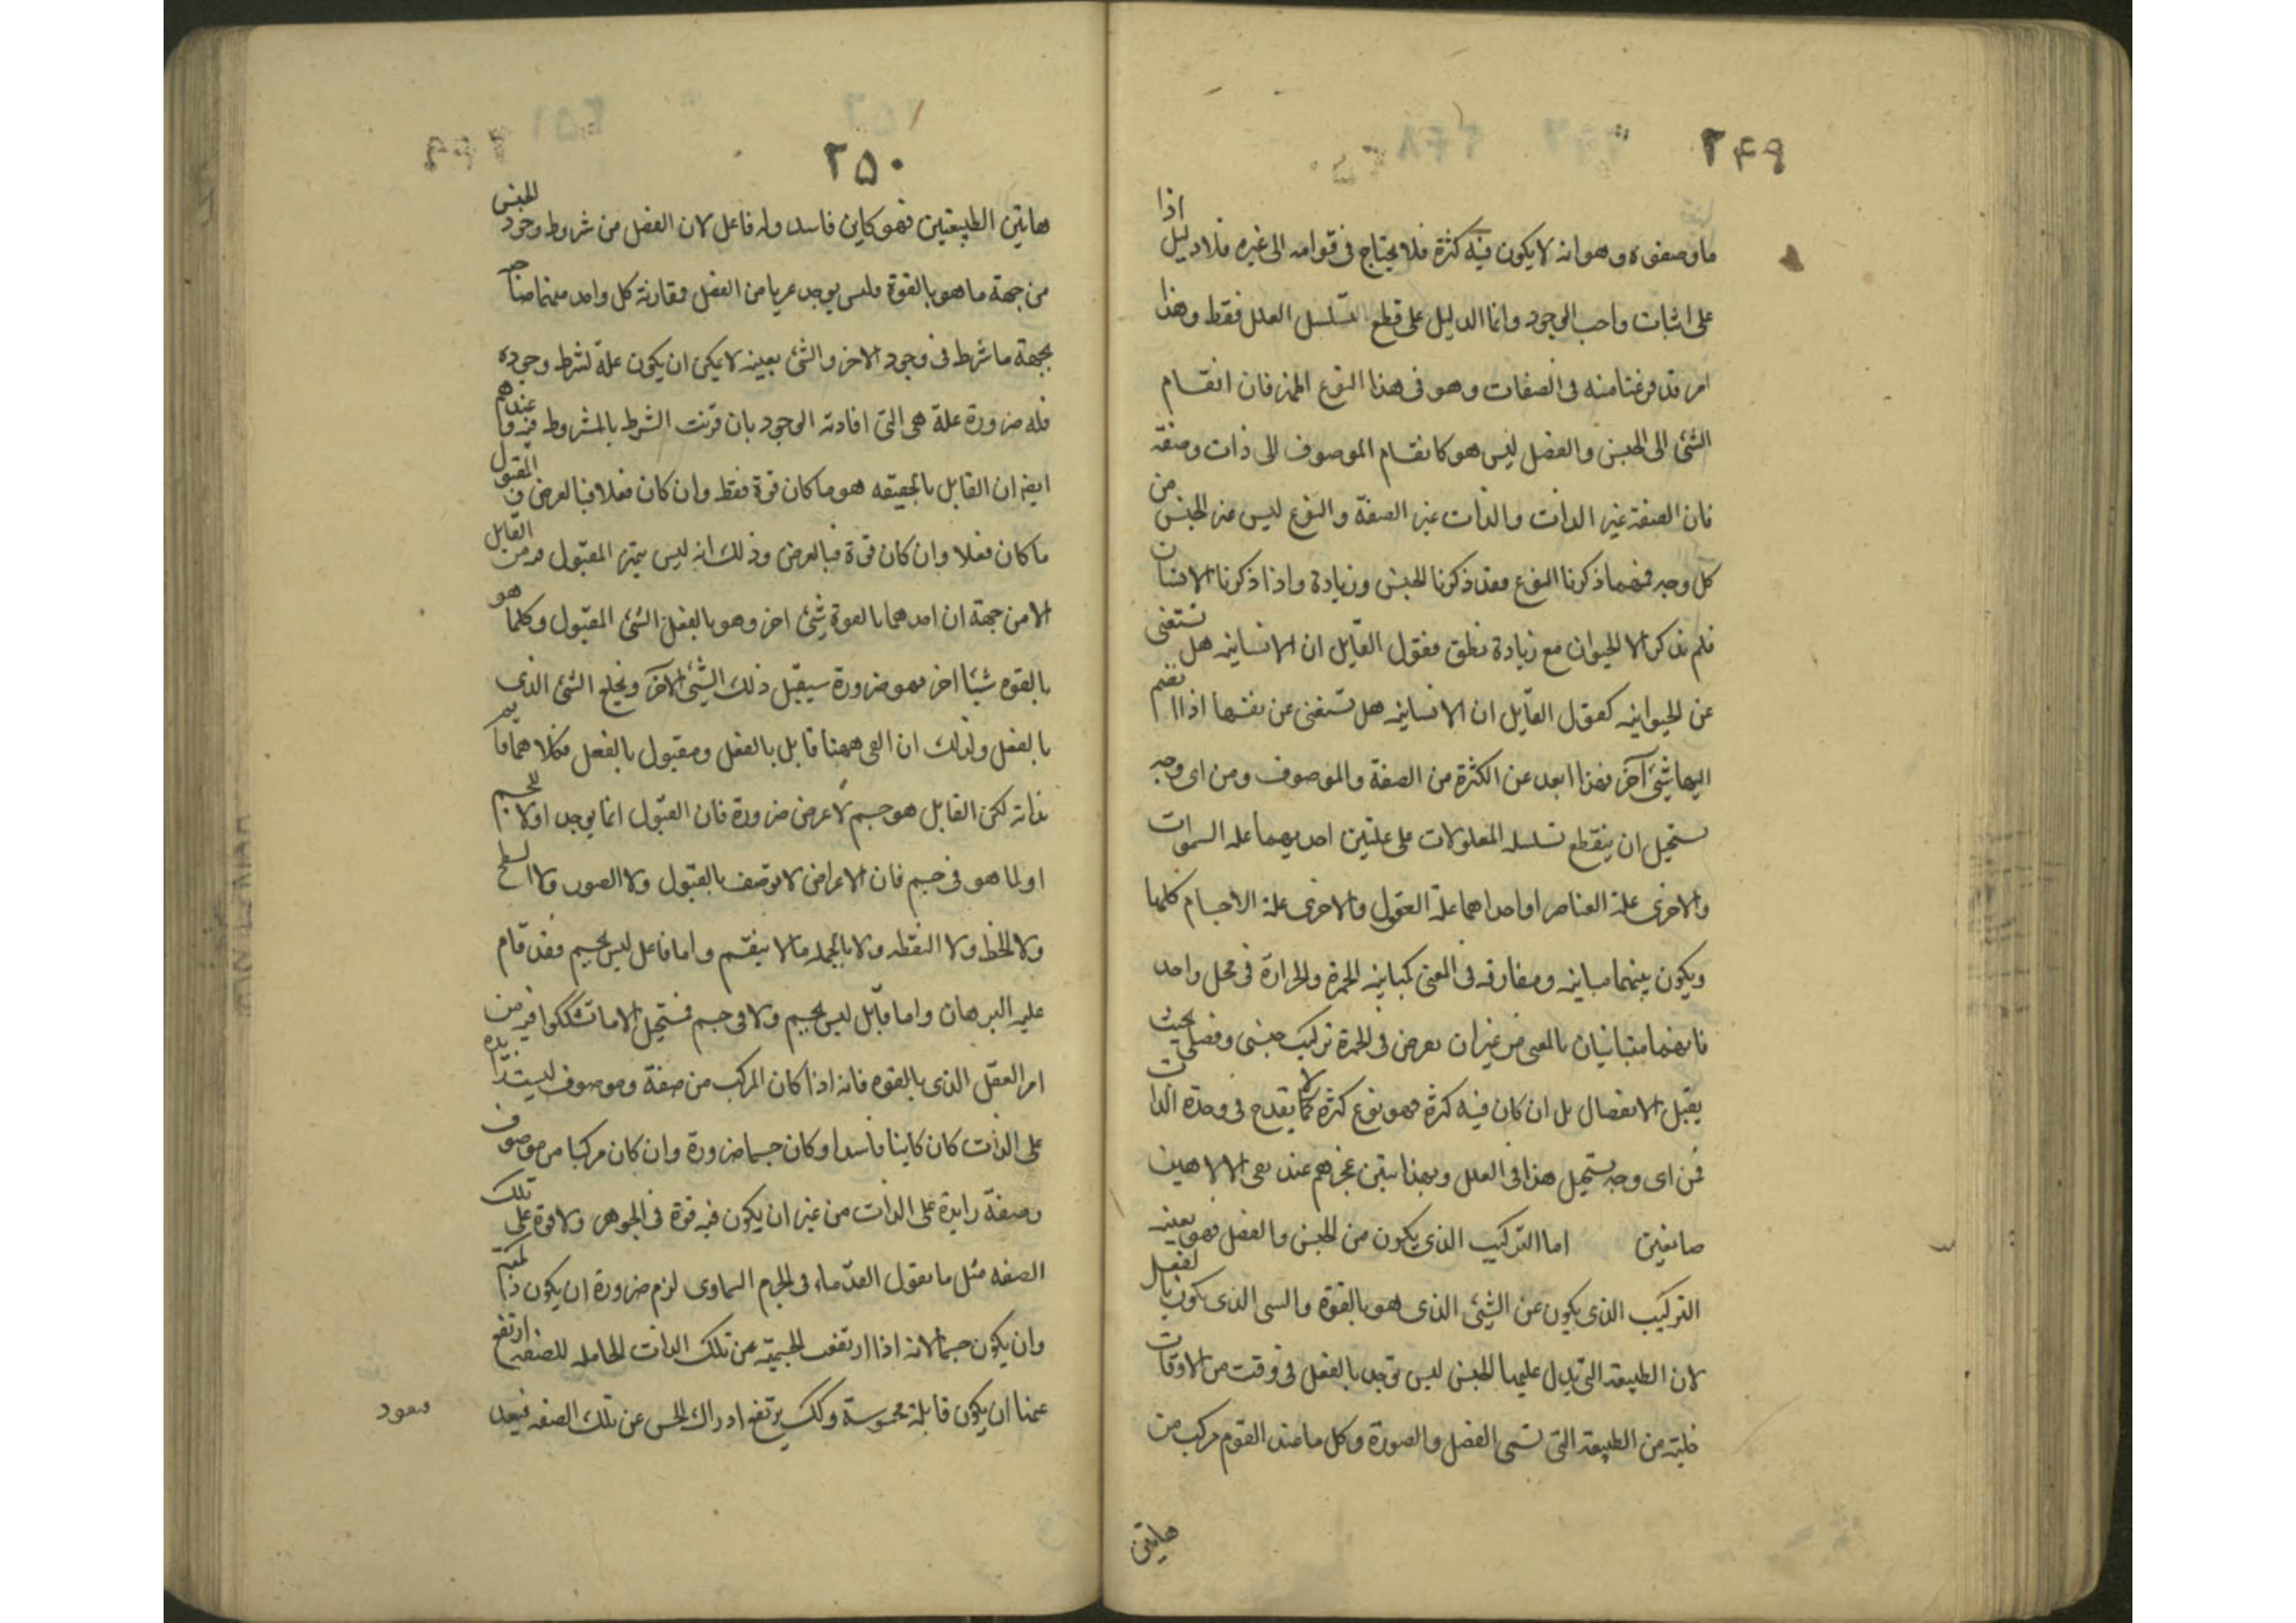 ٢٤٩
ما وصفوه وهو انه لا يكون فيه كثرة فلا يحتاج فى قوامه الى غيره فلا دليل اذا
على اثبات واجب الوجود وانما الدليل على قطع التسلسل العلل فقط وهذا
امر قد فرغنا منه فى الصفات وهو فى هذا النوع اظهر فان انقسام
الشئ الى الجنس والفصل ليس هو كانقسام الموصوف الى ذات وصفة
فان الصفة غير الذات والذات غير الصفة والنوع ليس غير الجنس من
كل وجه فمهما ذكرنا النوع فقد ذكرنا الجنس وزيادة واذا ذكرنا الانسان
فلم نذكر الا الحيوان مع زيادة نطق فقول القايل ان الانسانيه هل تستغنى
عن الحيوانيه كقول القايل ان الانسانيه هل تستغنى عن نفسها اذا انضم
اليها شيئ آخر فهذا ابعد عن الكثرة من الصفة والموصوف ومن اى وجه
يستحيل ان ينقطع تسلسله المعلولات على علتين احديهما علة السموات
والاخرى علة العناصر او احداهما علة العقول والاخرى علة الاجسام كلها
ويكون بينهما مباينه ومفارقه فى المعنى كمباينه الحمرة والحرارة فى محل واحد
فانهما متباينان بالمعنى من غير ان نعرض فى الحمرة تركيب جنسى وفصلى بحيث
يقبل الانفصال بل ان كان فيه كثرة فهو نوع كثرة لا يقدح فى وحدة الذات
فمن اى وجه يستحيل هذا فى العلل وبهذا يتبين عجزهم عند نفى الالاهين
صانعين اما التركيب الذى يكون من الجنس والفصل فهو بعينه
التركيب الذى يكون عن الشيئ الذى هو بالقوة والشى الذى يكون بالفعل
لان الطبيعة التى يدل عليها الجنس ليس توجد بالفعل فى وقت من الاوقات
خلية من الطبيعة التى تسمى الفصل والصورة وكل ما عند القوم مركب من
هاتين
٢٥٠
هاتين الطبيعتين فهو كاين فاسد وله فاعل لان الفصل من شروط وجود الجنس
من جهة ما هو بالقوة وليس يوجد عريا من الفصل فمقارنة كل واحد منهما صاحبه
بجهة ما شرط فى وجود الاخر والشئ بعينه لا يمكن ان يكون علة لشرط وجوده
فله ضرورة علة هى التى افادته الوجود بان قرنت الشرط بالمشروط فيه وعندهم
ايضا ان القابل بالحقيقه هو ما كان قوة فقط وان كان فعلا فبالعرض والمقبول
ما كان فعلا وان كان قوة فبالعرض وذلك انه ليس يتميز المقبول فيه من القابل
الا من جهة ان احدهما بالقوة شيئ اخر وهو بالفعل الشئ المقبول وكلما هو
بالقوه شيئا اخر فهو ضرورة سيقبل ذلك الشيئ الآخر ويخلع الشئ الذى
بالفعل ولذلك ان القى ههنا قابل بالفعل ومقبول بالفعل فكلاهما قايم
بذاته لكن القابل هو جسم لا عرض ضرورة فان القبول انما يوجد اولا للجسم
او لما هو فى جسم فان الاعراض لا توصف بالقبول ولا الصور ولا السطح
ولا الخط ولا النقطه ولا بالجمله ما لا ينقسم واما فاعل ليس بجسم فقد قام
عليه البرهان واما قابل ليس بجسم ولا فى جسم فمستحيل الا ما تشككوا فيه من
امر العقل الذى بالقوه فانه اذا كان المركب من صفة وموصوف ليست زايدة
على الذات كان كاينا فاسدا وكان جسما ضرورة وان كان مركبا من موصوف
وصفة زايدة على الذات من غير ان يكون فيه قوة فى الجوهر ولا قوة على تلك
الصفه مثل ما يقول القدماء فى الجرم السماوى لزم ضرورة ان يكون ذا كمية
وان يكون جسما لانه اذا ارتفعت الجسمية عن تلك الذات الحامله للصفه ارتفع
عنها ان يكون قابلة محسوسة وكك يرتفع ادراك الحس عن تلك الصفه فيعد
فيعود